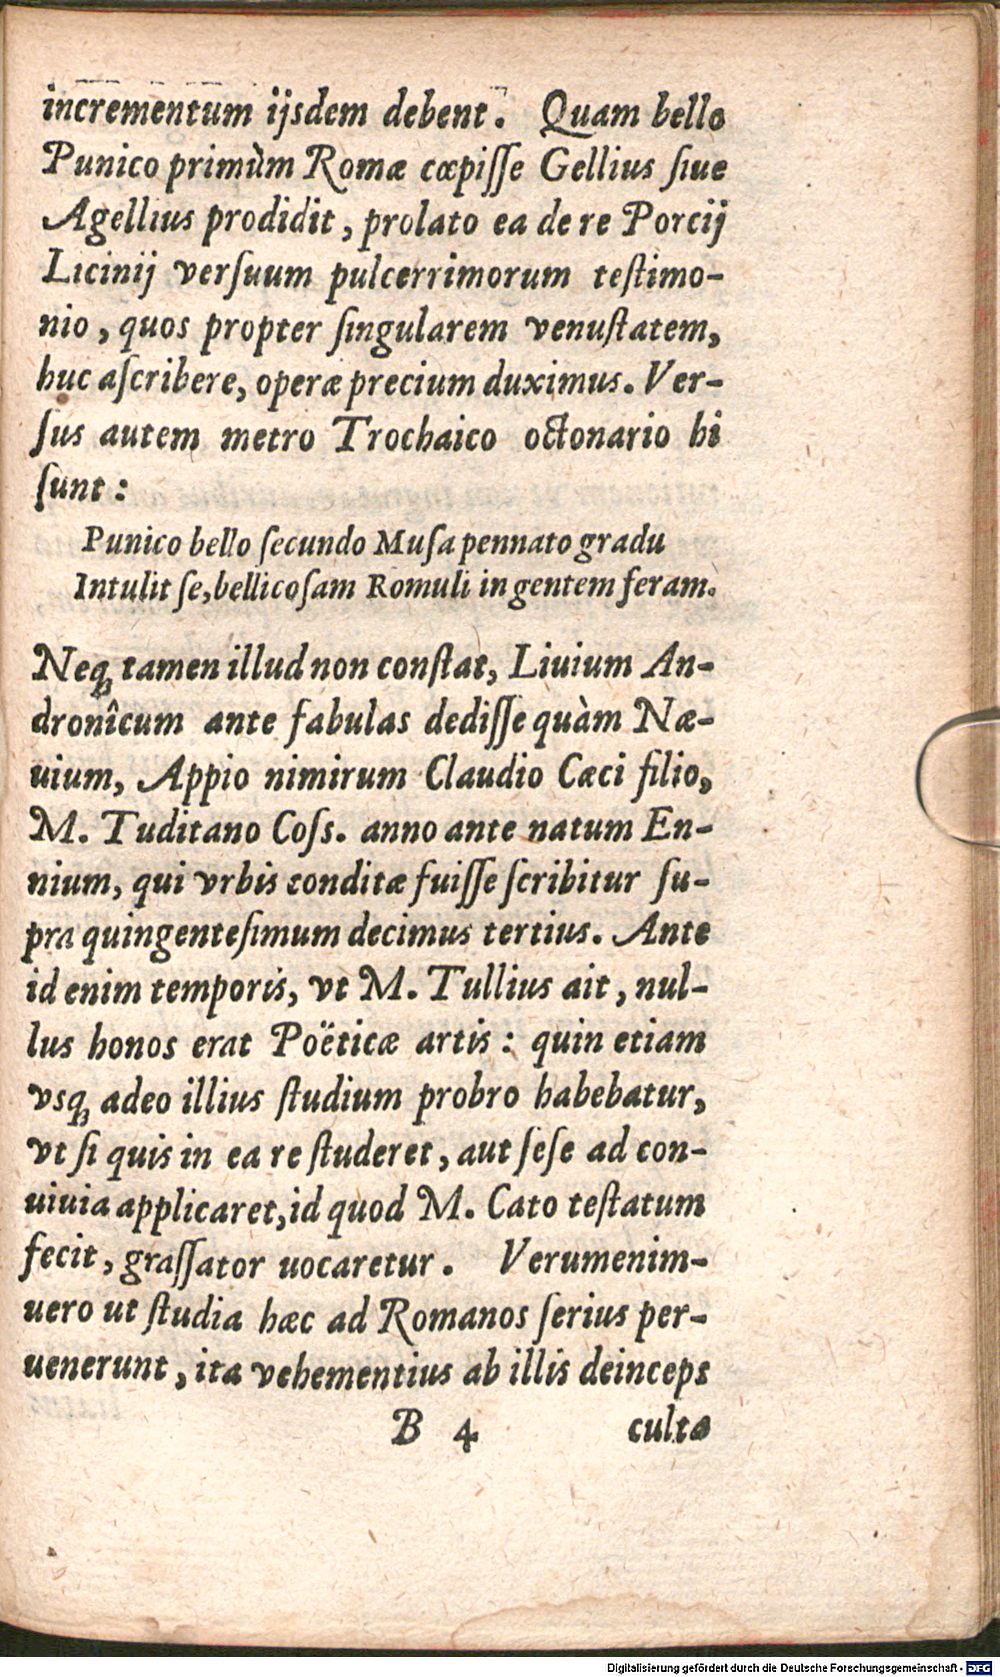 incrementum ijsdem debent. Quam bello
Punico primùm Romæ cœpiſſe Gellius ſiue
Agellius prodidit, prolato ea de re Porcij
Licinij verſuum pulcerrimorum teſtimo-
nio, quos propter ſingularem venuſtatem,
huc aſcribere, operæ precium duximus. Ver-
ſus autem metro Trochaico octonario hi
ſunt:
Punico bello ſecundo Muſa pennato gradu
Intulit ſe, bellicoſam Romuli in gentem feram.
Neqꝫ tamen illud non conſtat, Liuium An-
dronîcum ante fabulas dediſſe quàm Næ-
uium, Appio nimirum Claudio Cæci filio,
M. Tuditano Coſs. anno ante natum En-
nium, qui vrbis conditæ fuiſſe ſcribitur ſu-
pra quingenteſimum decimus tertius. Ante
id enim temporis, vt M. Tullius ait, nul-
lus honos erat Poëticæ artis: quin etiam
vsqꝫ adeo illius ſtudium probro habebatur,
vt ſi quis in ea re ſtuderet, aut ſeſe ad con-
uiuia applicaret, id quod M. Cato teſtatum
fecit, graſſator uocaretur. Verumenim-
uero ut ſtudia hæc ad Romanos ſerius per-
uenerunt, ita vehementius ab illis deinceps
B 4 culta
Digitalisierung gefördert durch die Deutsche Forschungsgemeinschaft - DFG